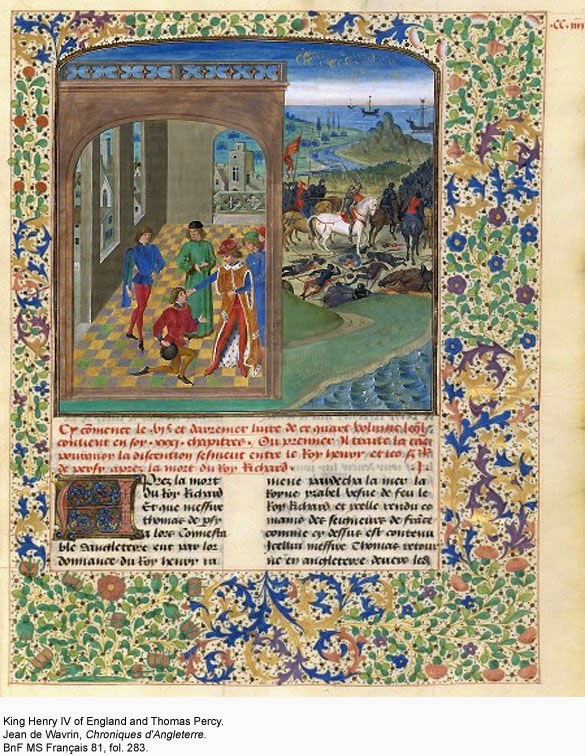 Cy cõmence le et darrenier livre de ce quart volume leql
contient en soy .xxxj. chapitres. Ou premier Il traite la
pourquoy la discention sesmeut entre le Roy henry et
de persy apres la mort du Roy Richard.
Aprez la mort
Du Roy Richard
Et que messire
thomas de psy
a lors Connesta
ble dangleterre eut par lor
donnance du Roy henry ra
mene la mer la
Royne ysabel vesve de feu le
Roy Richard et jcelle rendu
mains des seigneurs de frãce
comme cy dessus est contenu
Icellui messire Thomas retour
ne en angleterre devers led
King Henry IV of England and Thomas Percy.
Jean de Wavrin, Chroniques d'Angleterre.
BnF MS Français 81, fol. 283.